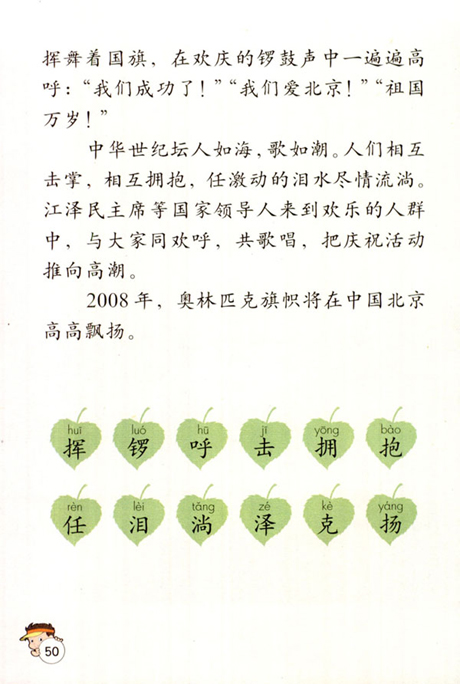 挥舞着国旗，在欢庆的锣鼓声中一遍遍高
呼：“我们成功了！”“我们爱北京！”“祖国
万岁！”
中华世纪坛人如海，歌如潮。人们相互
击掌，相互拥抱，任激动的泪水尽情流淌。
江泽民主席等国家领导人来到欢乐的人群
中，与大家同欢呼，共歌唱，把庆祝活动
推向高潮。
2008年，奥林匹克旗帜将在中国北京
高高飘扬。
huī luó hū jī yōng bào
挥 锣 呼 击 拥 抱
rèn lèi tǎng zé kè yáng
任 泪 淌 泽 克 扬
50